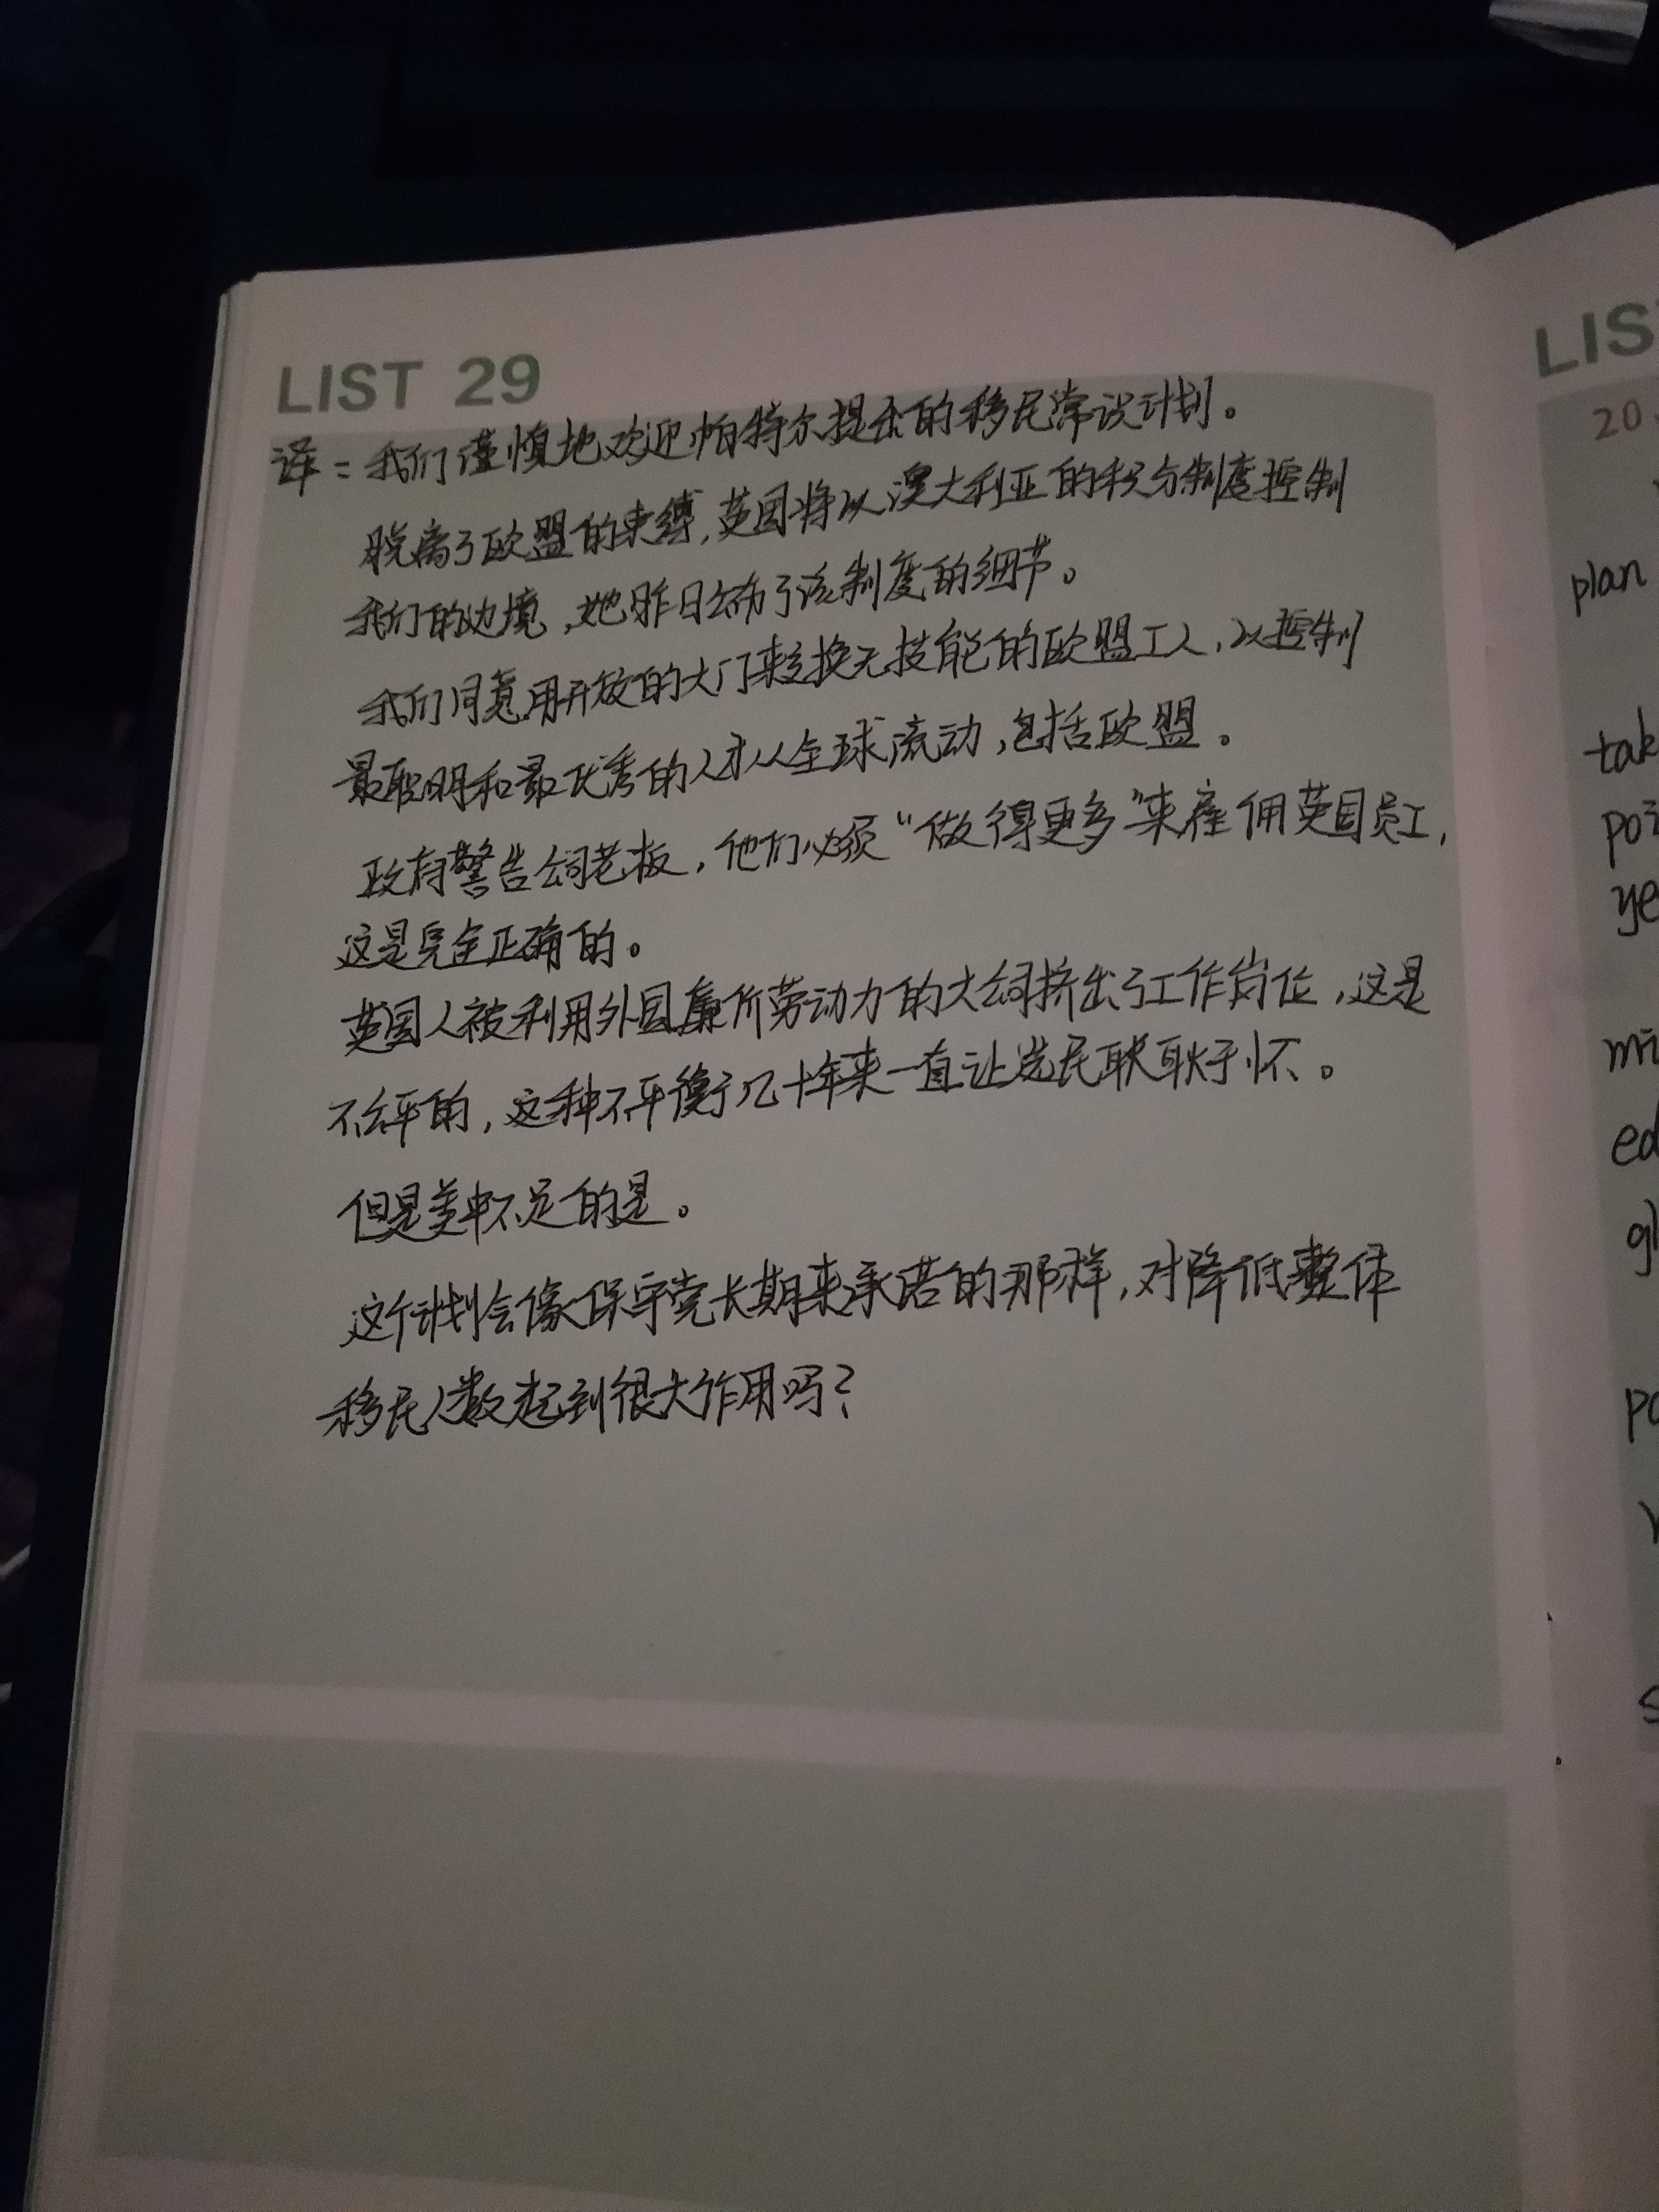 LIST 29
译：我们谨慎地欢迎帕特尔提出的移民常设计划。
脱离了欧盟的束缚，英国将以澳大利亚的积分制度控制
我们的边境，她昨日公布了该制度的细节。
我们同意用开放的大门来交换无技能的欧盟工人，以控制
最聪明和最优秀的人才从全球流动，包括欧盟。
政府警告公司老板，他们必须“做得更多”来雇佣英国员工，
这是完全正确的。
英国人被利用外国廉价劳动力的大公司挤出了工作岗位，这是
不公平的，这种不平衡几十年来一直让选民耿耿于怀。
但是美中不足的是。
这个计划会像保守党长期来承诺的那样，对降低整体
移民人数起到很大作用吗？
LIS
20
plan
tak
poi
ye
mi
ed
gl
po